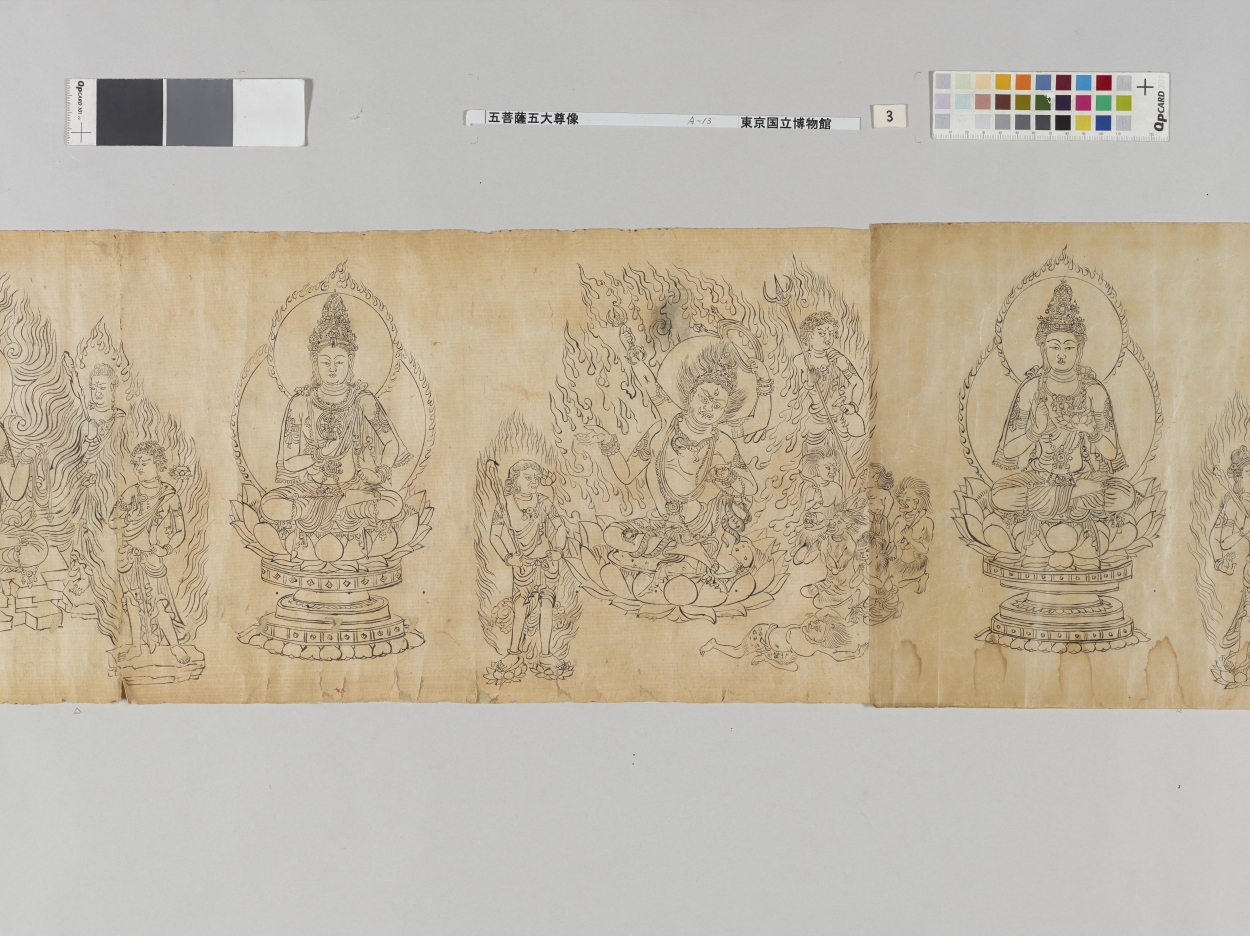 QPCARD 101
五菩薩五大尊像 A-13 東京国立博物館
3
QPCARD 201